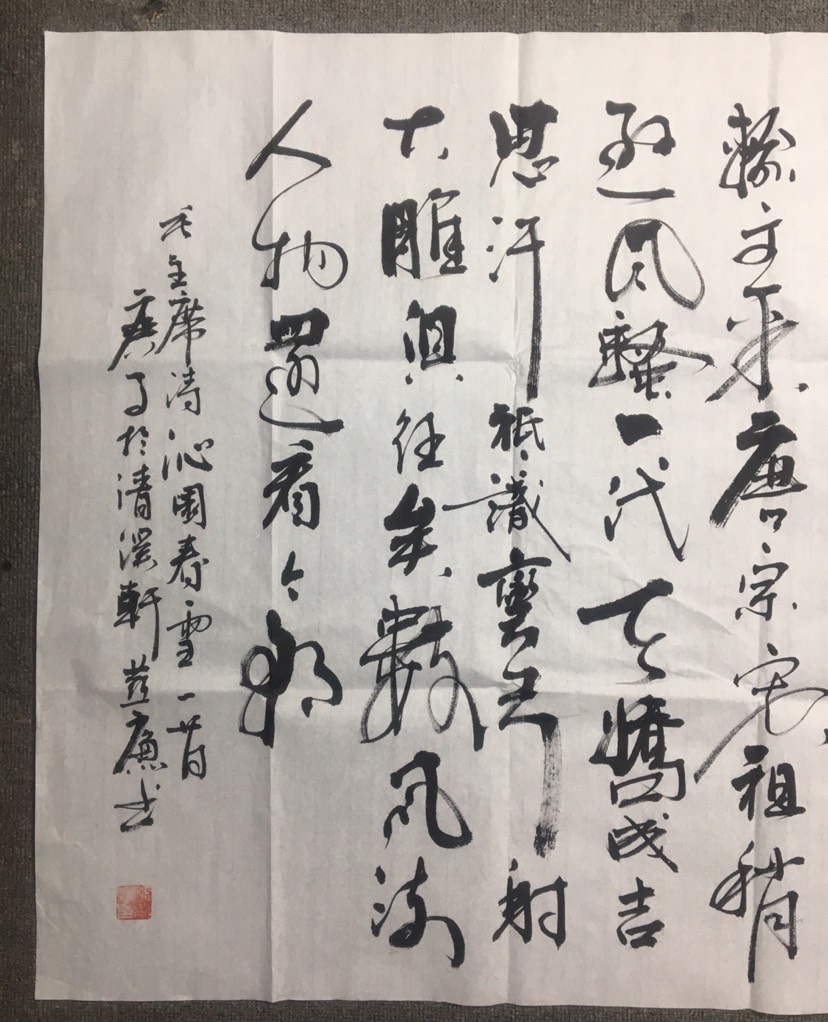 輸文采唐宗宋祖稍
遜风騷一代天驕成吉
思汗祗識彎弓射
大雕俱往矣數风流
人物還看今朝
毛主席詩沁園春雪一首
庚子於清溪軒廉书